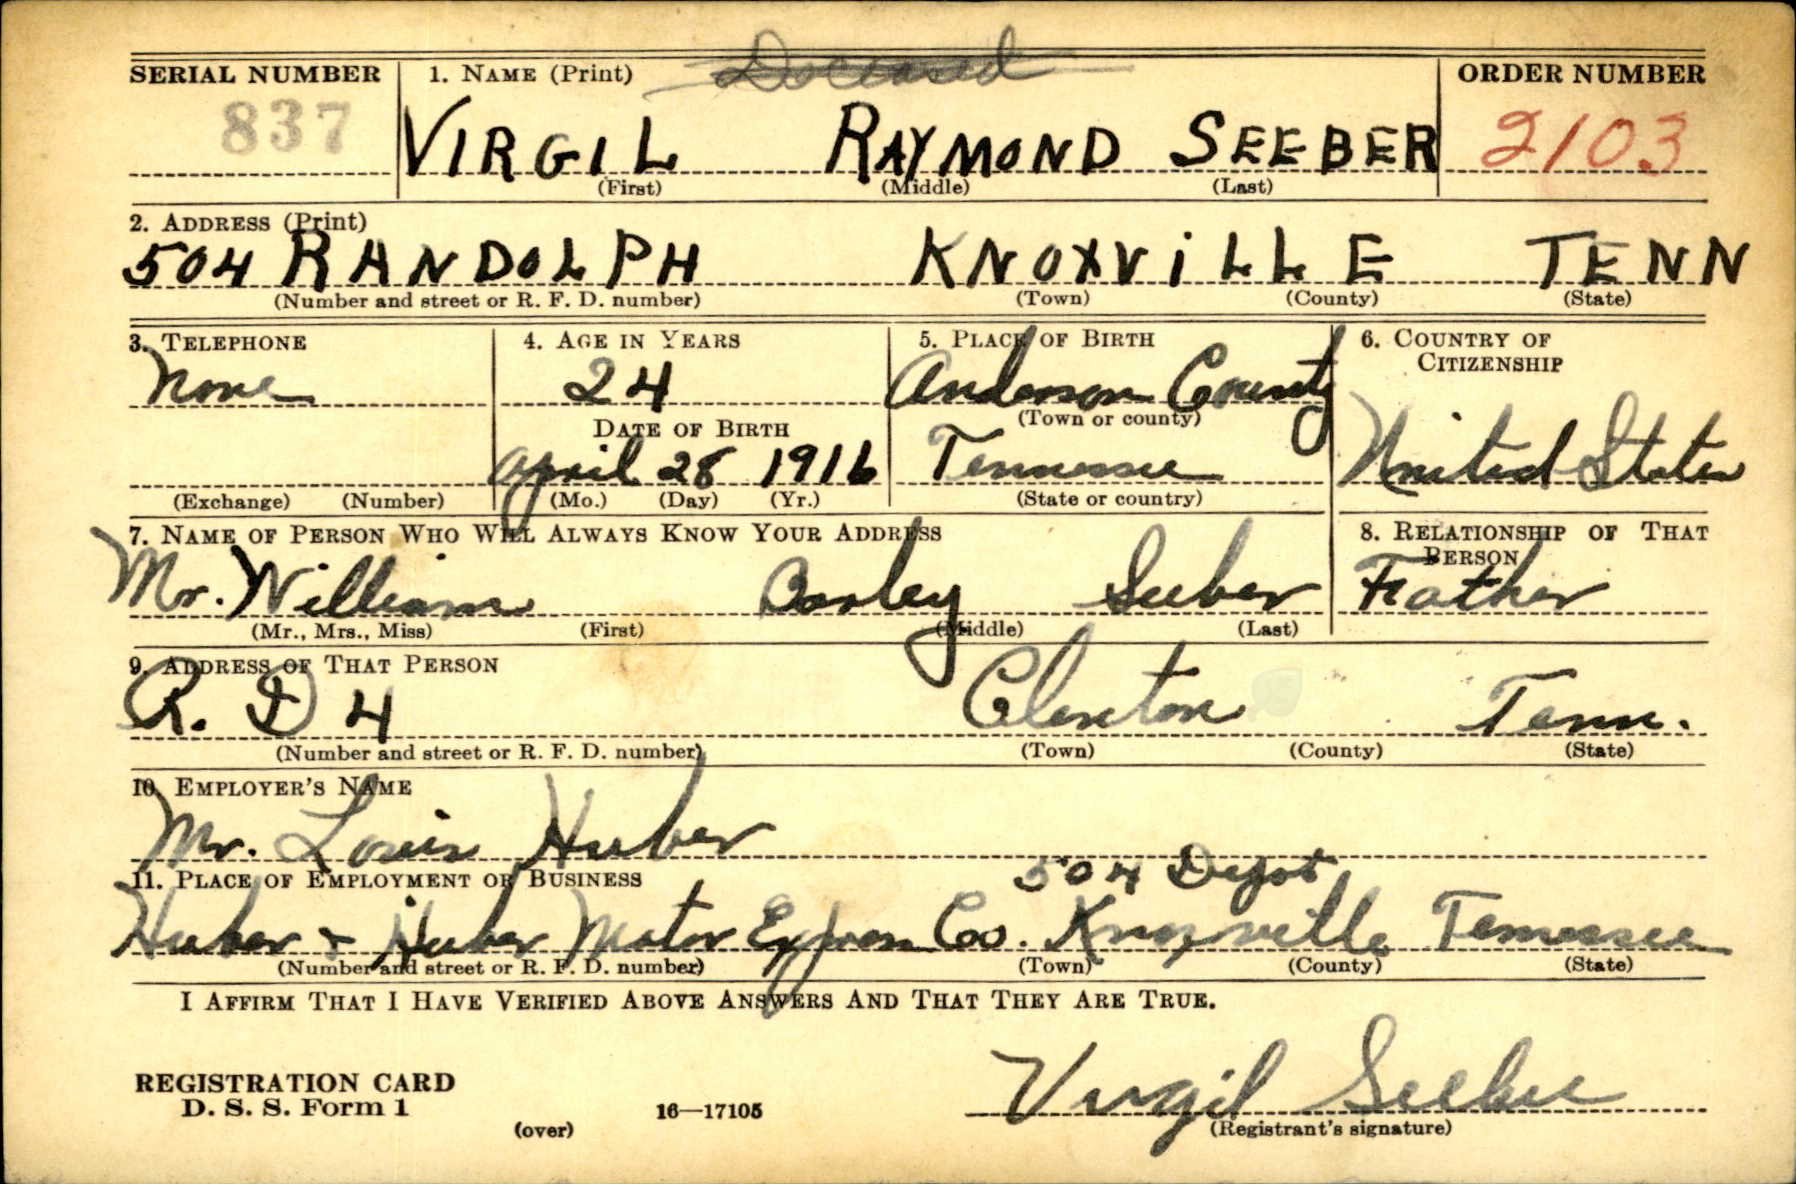 Deceased
SERIAL NUMBER 1. NAME (Print) ORDER NUMBER
837 VIRGIL RAYMOND SEEBER 2103
(First) (Middle) (Last)
2. ADDRESS (Print)
504 RANDOLPH KNOXVILLE TENN
(Number and street or R. F. D. number) (Town) (County) (State)
3. TELEPHONE 4. AGE IN YEARS 5. PLACE OF BIRTH 6. COUNTRY OF
CITIZENSHIP
None 24 Anderson County
(Town or county)
DATE OF BIRTH
April 28 1916 Tennessee United States
(Exchange) (Number) (Mo.) (Day) (Yr.) (State or country)
7. NAME OF PERSON WHO WILL ALWAYS KNOW YOUR ADDRESS 8. RELATIONSHIP OF THAT
PERSON
Mr. William Oarley Seeber Father
(Mr., Mrs., Miss) (First) (Middle) (Last)
9. ADDRESS OF THAT PERSON
R. D 4 Clinton Tenn.
(Number and street or R. F. D. number) (Town) (County) (State)
10. EMPLOYER'S NAME
Mr. Louis Huber
11. PLACE OF EMPLOYMENT OR BUSINESS 504 Depot
Huber + Huber Motor Express Co. Knoxville Tennessee
(Number and street or R. F. D. number) (Town) (County) (State)
I AFFIRM THAT I HAVE VERIFIED ABOVE ANSWERS AND THAT THEY ARE TRUE.
REGISTRATION CARD
D. S. S. Form 1 16—17105 Virgil Seeber
(over) (Registrant's signature)